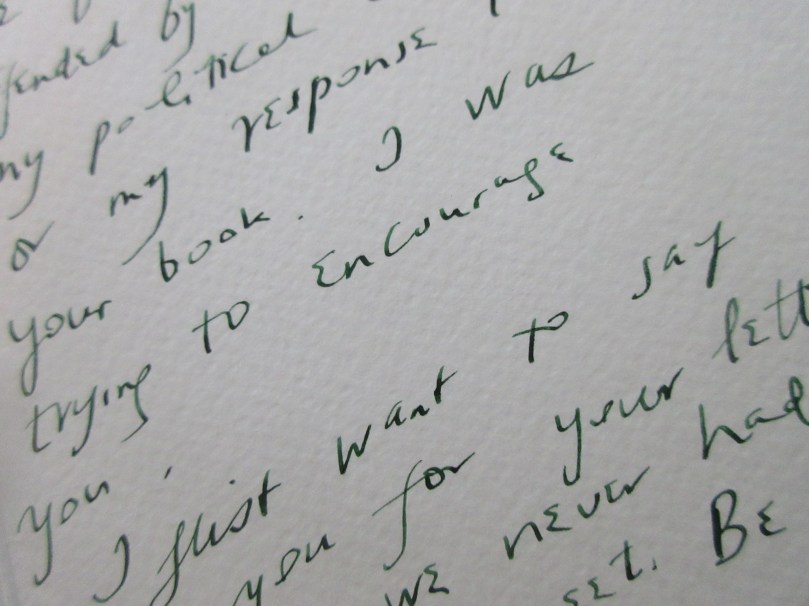 by
my political
or my response
your book. I was
trying to encourage
you.
I just want to say
you for your lett
we never had
set. Be